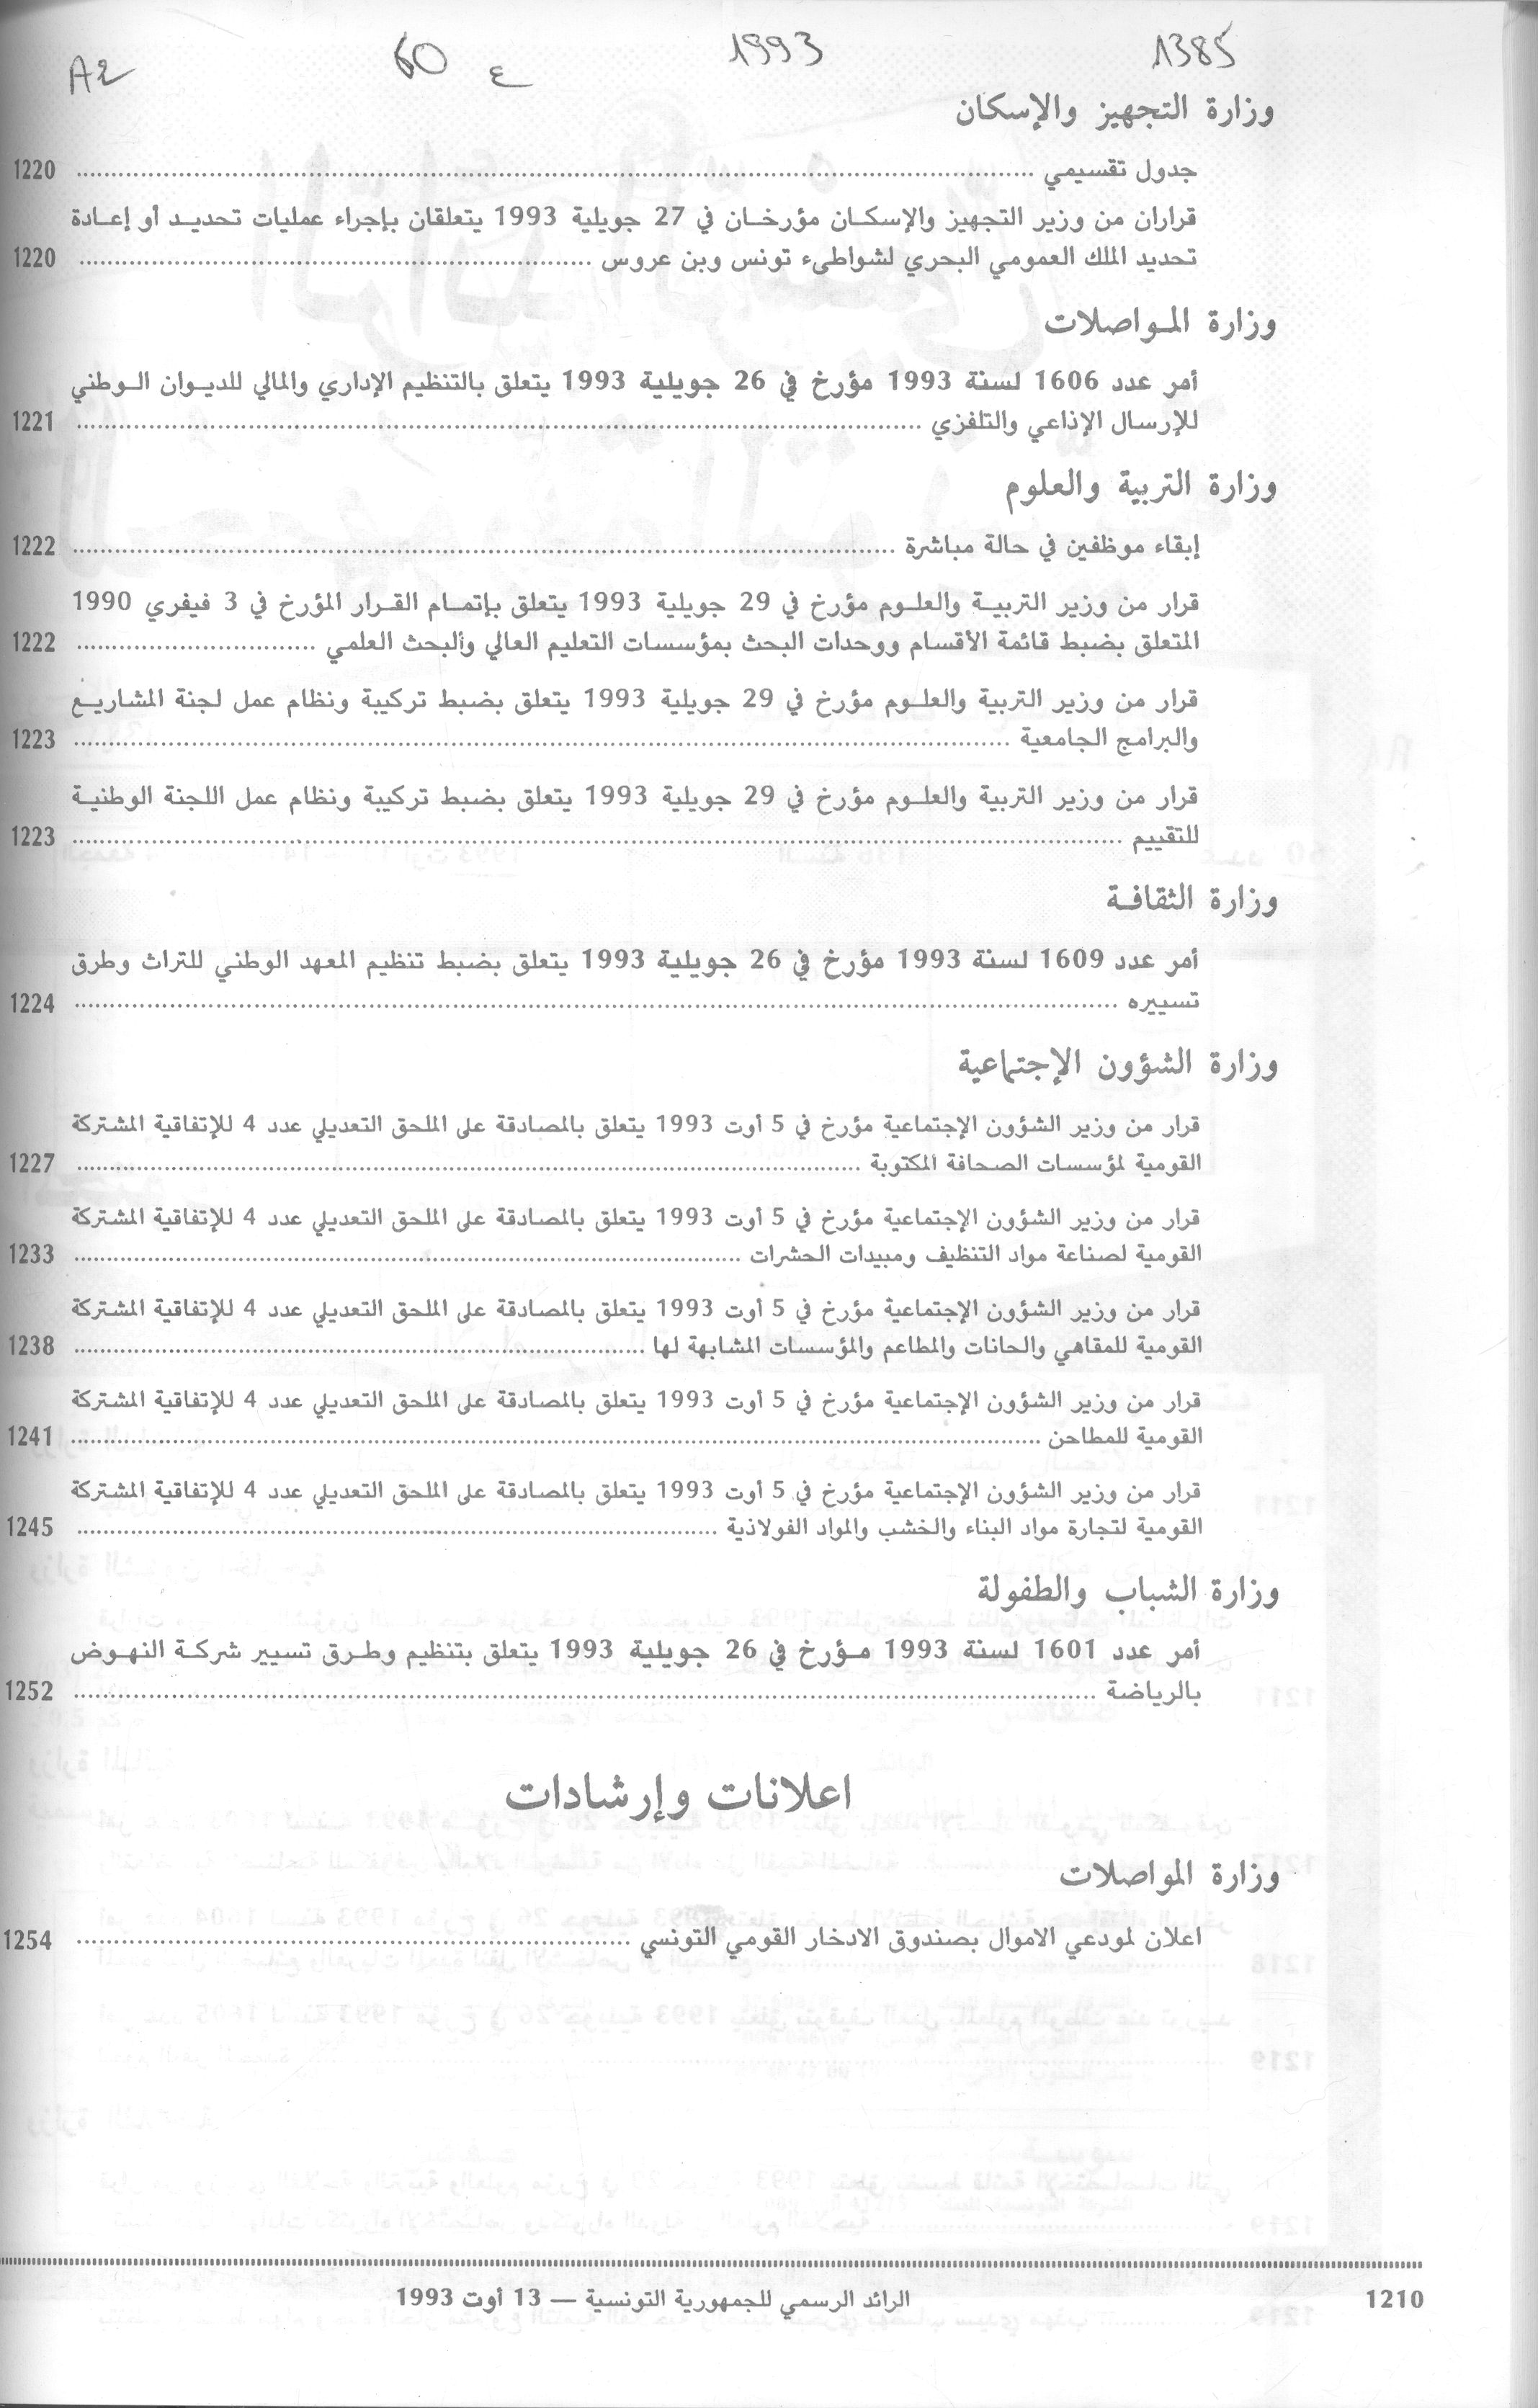 1385 1993 ع 60 A2
وزارة التجهيز والإسكان
جدول تقسيمي ........ 1220
قراران من وزير التجهيز والإسكان مؤرخان في 27 جويلية 1993 يتعلقان بإجراء عمليات تحديد أو إعادة
تحديد الملك العمومي البحري لشواطىء تونس وبن عروس ........ 1220
وزارة المواصلات
أمر عدد 1606 لسنة 1993 مؤرخ في 26 جويلية 1993 يتعلق بالتنظيم الإداري والمالي للديوان الوطني
للإرسال الإذاعي والتلفزي ........ 1221
وزارة التربية والعلوم
إبقاء موظفين في حالة مباشرة ........ 1222
قرار من وزير التربية والعلوم مؤرخ في 29 جويلية 1993 يتعلق بإتمام القرار المؤرخ في 3 فيفري 1990
المتعلق بضبط قائمة الأقسام ووحدات البحث بمؤسسات التعليم العالي والبحث العلمي ........ 1222
قرار من وزير التربية والعلوم مؤرخ في 29 جويلية 1993 يتعلق بضبط تركيبة ونظام عمل لجنة المشاريع
والبرامج الجامعية ........ 1223
قرار من وزير التربية والعلوم مؤرخ في 29 جويلية 1993 يتعلق بضبط تركيبة ونظام عمل اللجنة الوطنية
للتقييم ........ 1223
وزارة الثقافة
أمر عدد 1609 لسنة 1993 مؤرخ في 26 جويلية 1993 يتعلق بضبط تنظيم المعهد الوطني للتراث وطرق
تسييره ........ 1224
وزارة الشؤون الإجتماعية
قرار من وزير الشؤون الإجتماعية مؤرخ في 5 أوت 1993 يتعلق بالمصادقة على الملحق التعديلي عدد 4 للإتفاقية المشتركة
القومية لمؤسسات الصحافة المكتوبة ........ 1227
قرار من وزير الشؤون الإجتماعية مؤرخ في 5 أوت 1993 يتعلق بالمصادقة على الملحق التعديلي عدد 4 للإتفاقية المشتركة
القومية لصناعة مواد التنظيف ومبيدات الحشرات ........ 1233
قرار من وزير الشؤون الإجتماعية مؤرخ في 5 أوت 1993 يتعلق بالمصادقة على الملحق التعديلي عدد 4 للإتفاقية المشتركة
القومية للمقاهي والحانات والمطاعم والمؤسسات المشابهة لها ........ 1238
قرار من وزير الشؤون الإجتماعية مؤرخ في 5 أوت 1993 يتعلق بالمصادقة على الملحق التعديلي عدد 4 للإتفاقية المشتركة
القومية للمطاحن ........ 1241
قرار من وزير الشؤون الإجتماعية مؤرخ في 5 أوت 1993 يتعلق بالمصادقة على الملحق التعديلي عدد 4 للإتفاقية المشتركة
القومية لتجارة مواد البناء والخشب والمواد الفولاذية ........ 1245
وزارة الشباب والطفولة
أمر عدد 1601 لسنة 1993 مؤرخ في 26 جويلية 1993 يتعلق بتنظيم وطرق تسيير شركة النهوض
بالرياضة ........ 1252
اعلانات وإرشادات
وزارة المواصلات
اعلان لمودعي الاموال بصندوق الادخار القومي التونسي ........ 1254
1210 الرائد الرسمي للجمهورية التونسية — 13 أوت 1993